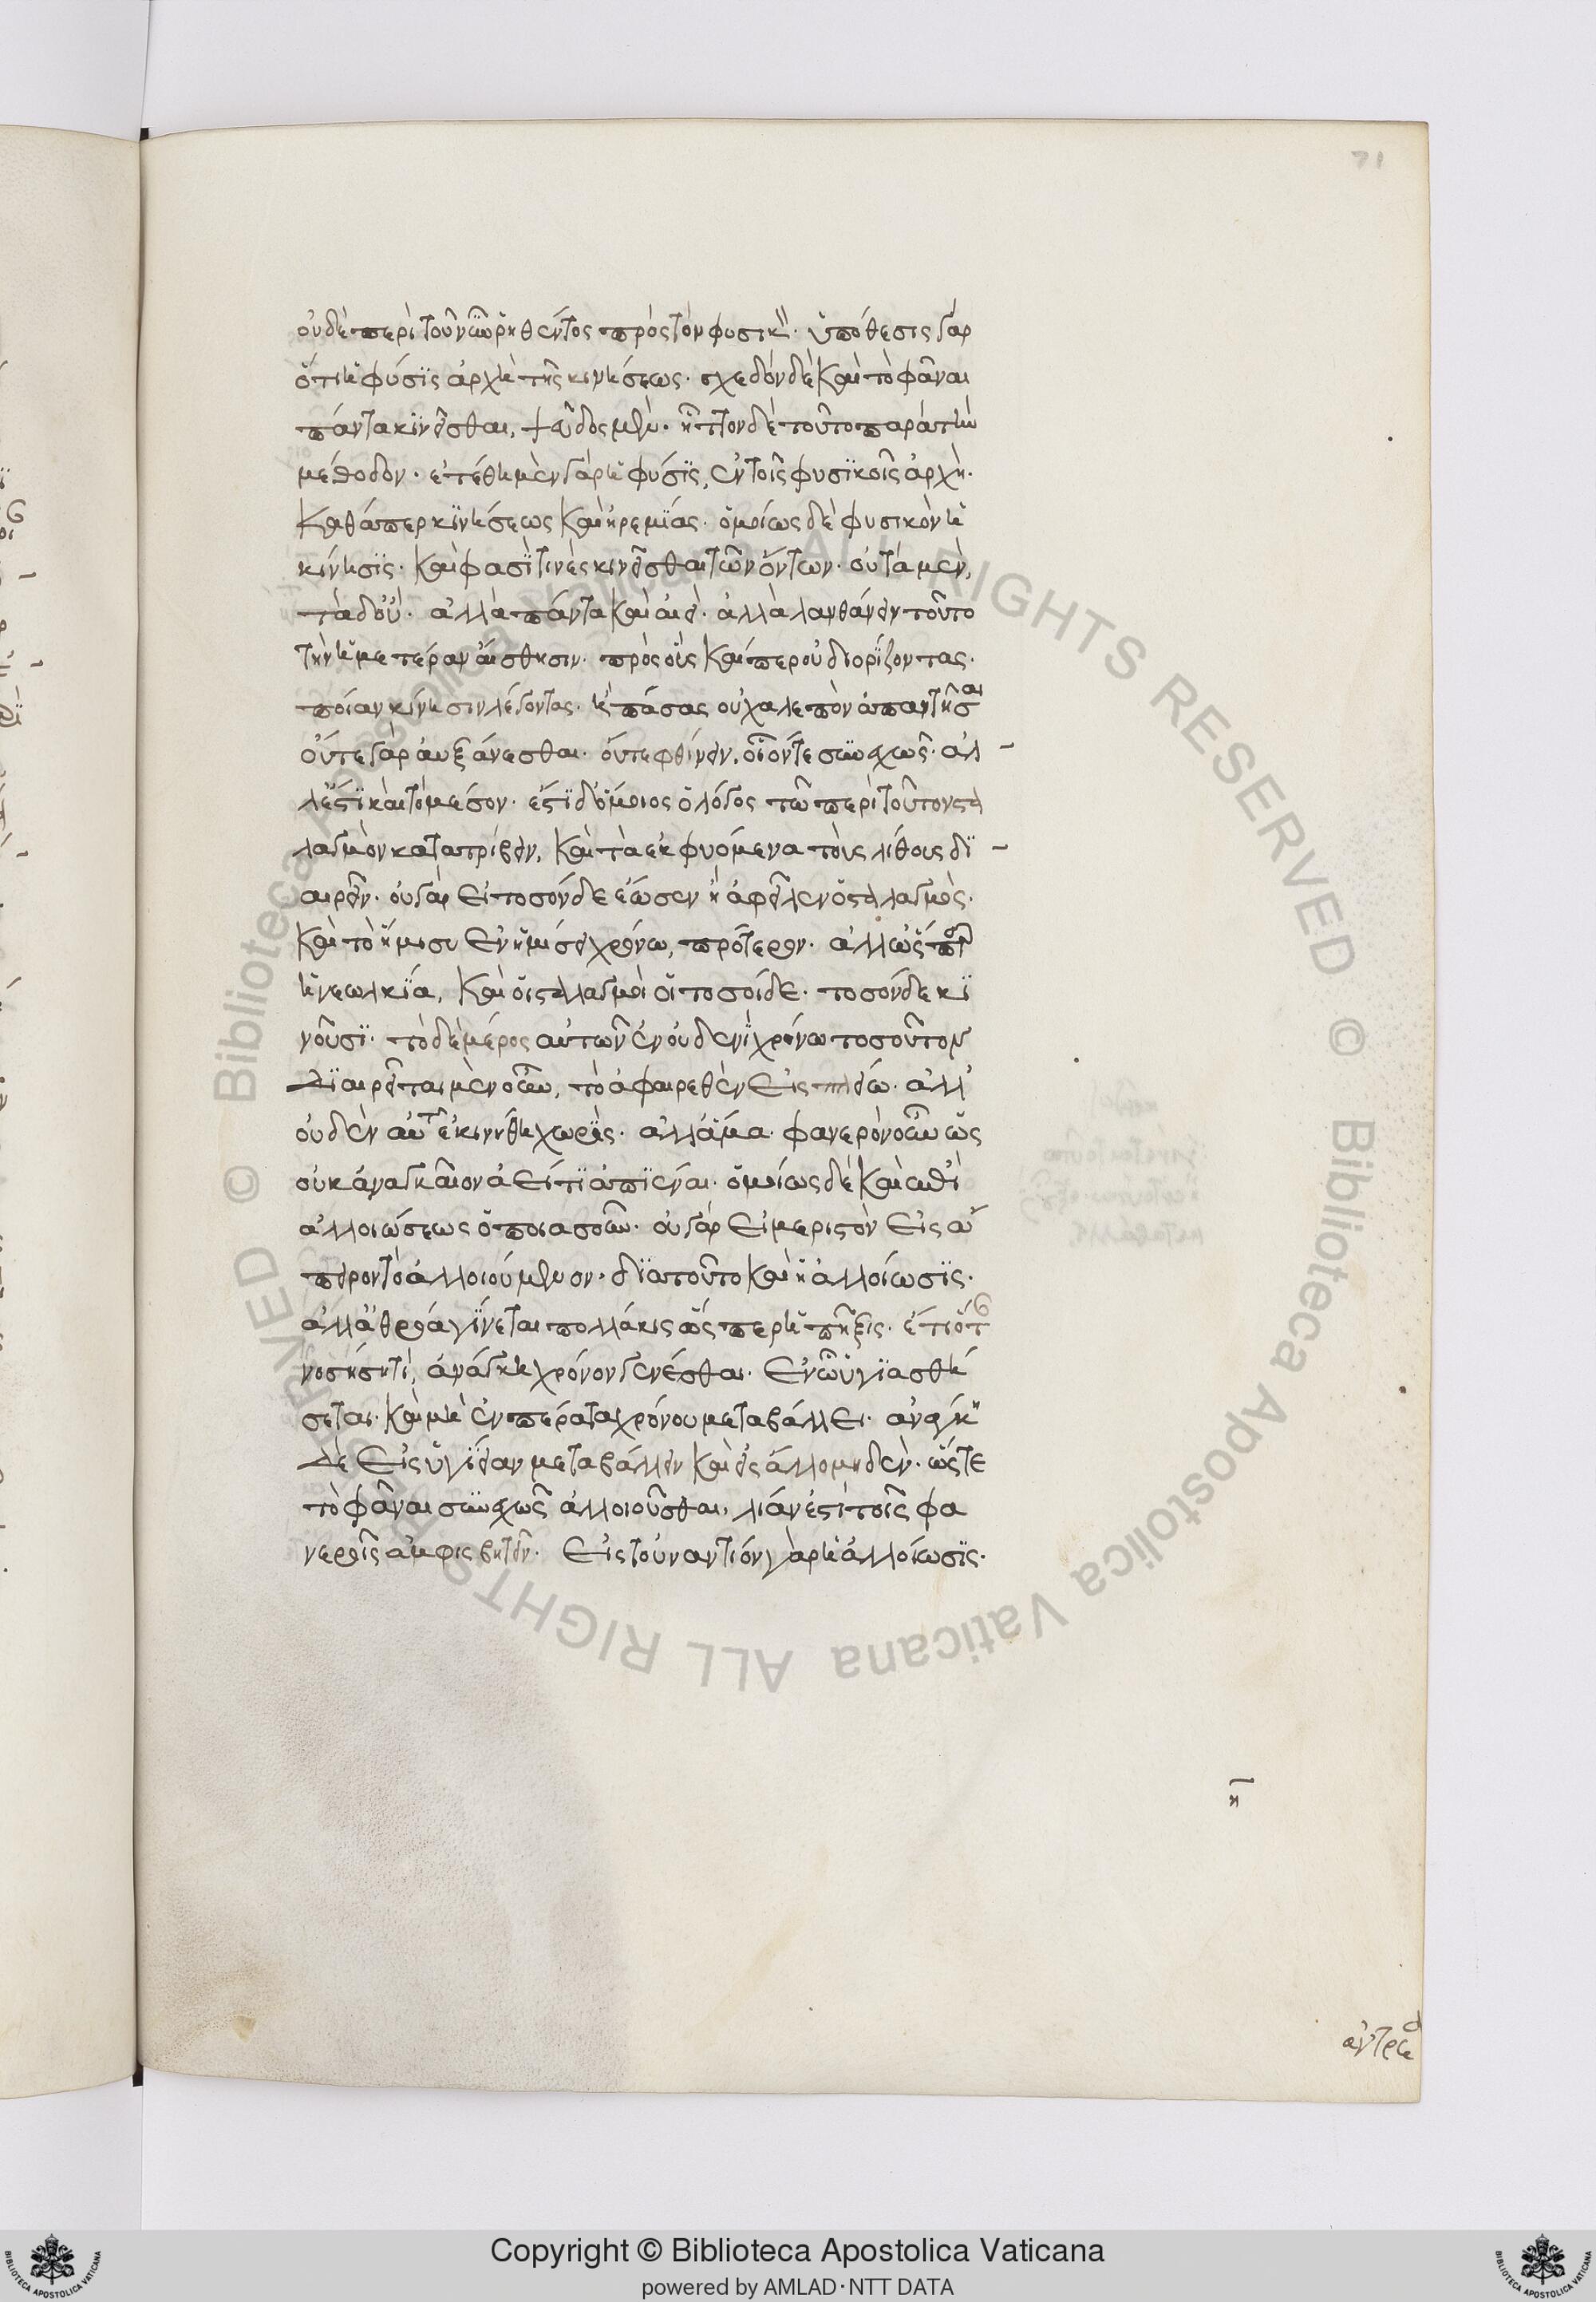 71
οὐδὲ περὶ τοῦ νῦν ῥηθέντος πρὸς τὸν φυσικόν· ὑπόθεσις γὰρ
ὅτι ἡ φύσϊς ἀρχὴ τῆς κινήσεως· σχεδὸν δὲ καὶ τὸ φάναι
πάντα κϊνεῖσθαι, ψεῦδος μὲν· ἧττον δὲ τοῦτο παρὰ τὴν
μέθοδον· ἐτέθη μὲν γὰρ ἡ φύσϊς, ἐν τοῖς φυσϊκοῖς ἀρχὴ·
καθάπερ κϊνήσεως καὶ ἠρεμϊας· ὁμοίως δὲ φυσικὸν ἡ
κίνησϊς· καὶ φασΐ τινὲς κινεῖσθαι τῶν ὄντων· οὐ τὰ μὲν,
τὰ δ' οὔ· ἀλλὰ πάντα καὶ ἀεὶ· ἀλλὰ λανθάνειν τοῦτο
τὴν ἡμετέραν αἴσθησιν· πρὸς οὓς καίπερ οὐ διορΐζοντας·
ποίαν κίνησιν λέγοντας· ἢ πάσας οὐ χαλεπὸν ἀπαντῆσαι
οὔτε γὰρ αὐξάνεσθαι· οὔτε φθίνειν, οἷόν τε συνεχῶς· ἀλ
λ' ἔστϊ καὶ τὸ μέσον· ἔστϊ δ' ὅμοιος ὁ λόγος τῶ περὶ τοῦ τὸν στα
λαγμὸν κατατρίβειν, καὶ τὰ ἐκφυόμενα τοὺς λίθους δϊ
αιρεῖν· οὐ γὰρ εἰ τοσόνδε ἔωσεν ἢ ἀφεῖλεν ὁ σταλαγμὸς·
καὶ τὸ ἥμισυ ἐν ἡμίσει χρόνω, πρότερον· ἀλλ' ὥσπερ
ἡ νεωλκϊα, καὶ οἱ σταλαγμοὶ οἱ τοσοίδε· τοσόνδε κϊ
νοῦσϊ· τὸ δὲ μέρος αὐτῶν ἐν οὐδενΐ χρόνω τοσοῦτον
Δϊαιρεῖται μὲν οὖν, τὸ ἀφαιρεθὲν εἰς πλείω· ἀλλ'
οὐδὲν αὐτῶν ἐκινήθη χωρΐς· ἀλλ' ἅμα· φανερὸν οὖν ὡς
οὐκ ἀναγκαῖον ἀεί τϊ ἀπϊέναι· ὁμοίως δὲ καὶ ἐπὶ
ἀλλοιώσεως ὁποιασοῦν· οὐ γὰρ εἰ μεριστὸν εἰς ἄ
πειρον τὸ ἀλλοιούμενον· δϊὰ τοῦτο καὶ ἡ ἀλλοίωσϊς·
ἀλλ' ἀθρόα γΐνεται πολλάκις ὥσπερ ἡ πῆξις· ἔτι ὅτ
νοσήσητϊ, ἀνάγκη χρόνον γενέσθαι· ἐν ὧ ὑγϊασθή
σεται· καὶ μὴ ἐν πέρατα χρόνου μεταβάλλει· ἀνάγκη
Δὲ εἰς ὑγΐειαν μεταβάλλειν καὶ εἰς ἄλλο μηδὲν· ὥστε
τὸ φάναι συνεχῶς ἀλλοιοῦσθαι, λίαν ἐστὶ τοῖς φα
νεροῖς ἀμφισβητεῖν· Εἰς τοὐναντίον γὰρ ἡ ἀλλοίωσϊς·
η
Copyright © Biblioteca Apostolica Vaticana
powered by AMLAD·NTT DATA